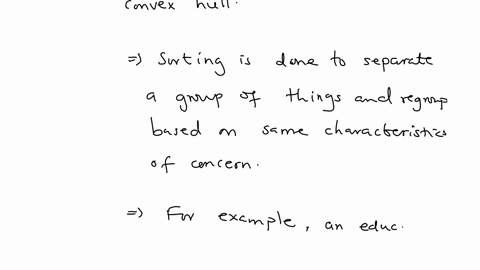 convex hull.
=> Sorting is done to separate
a group of things and regroup
based on same characteristics
of concern.
=> For example, an educ.